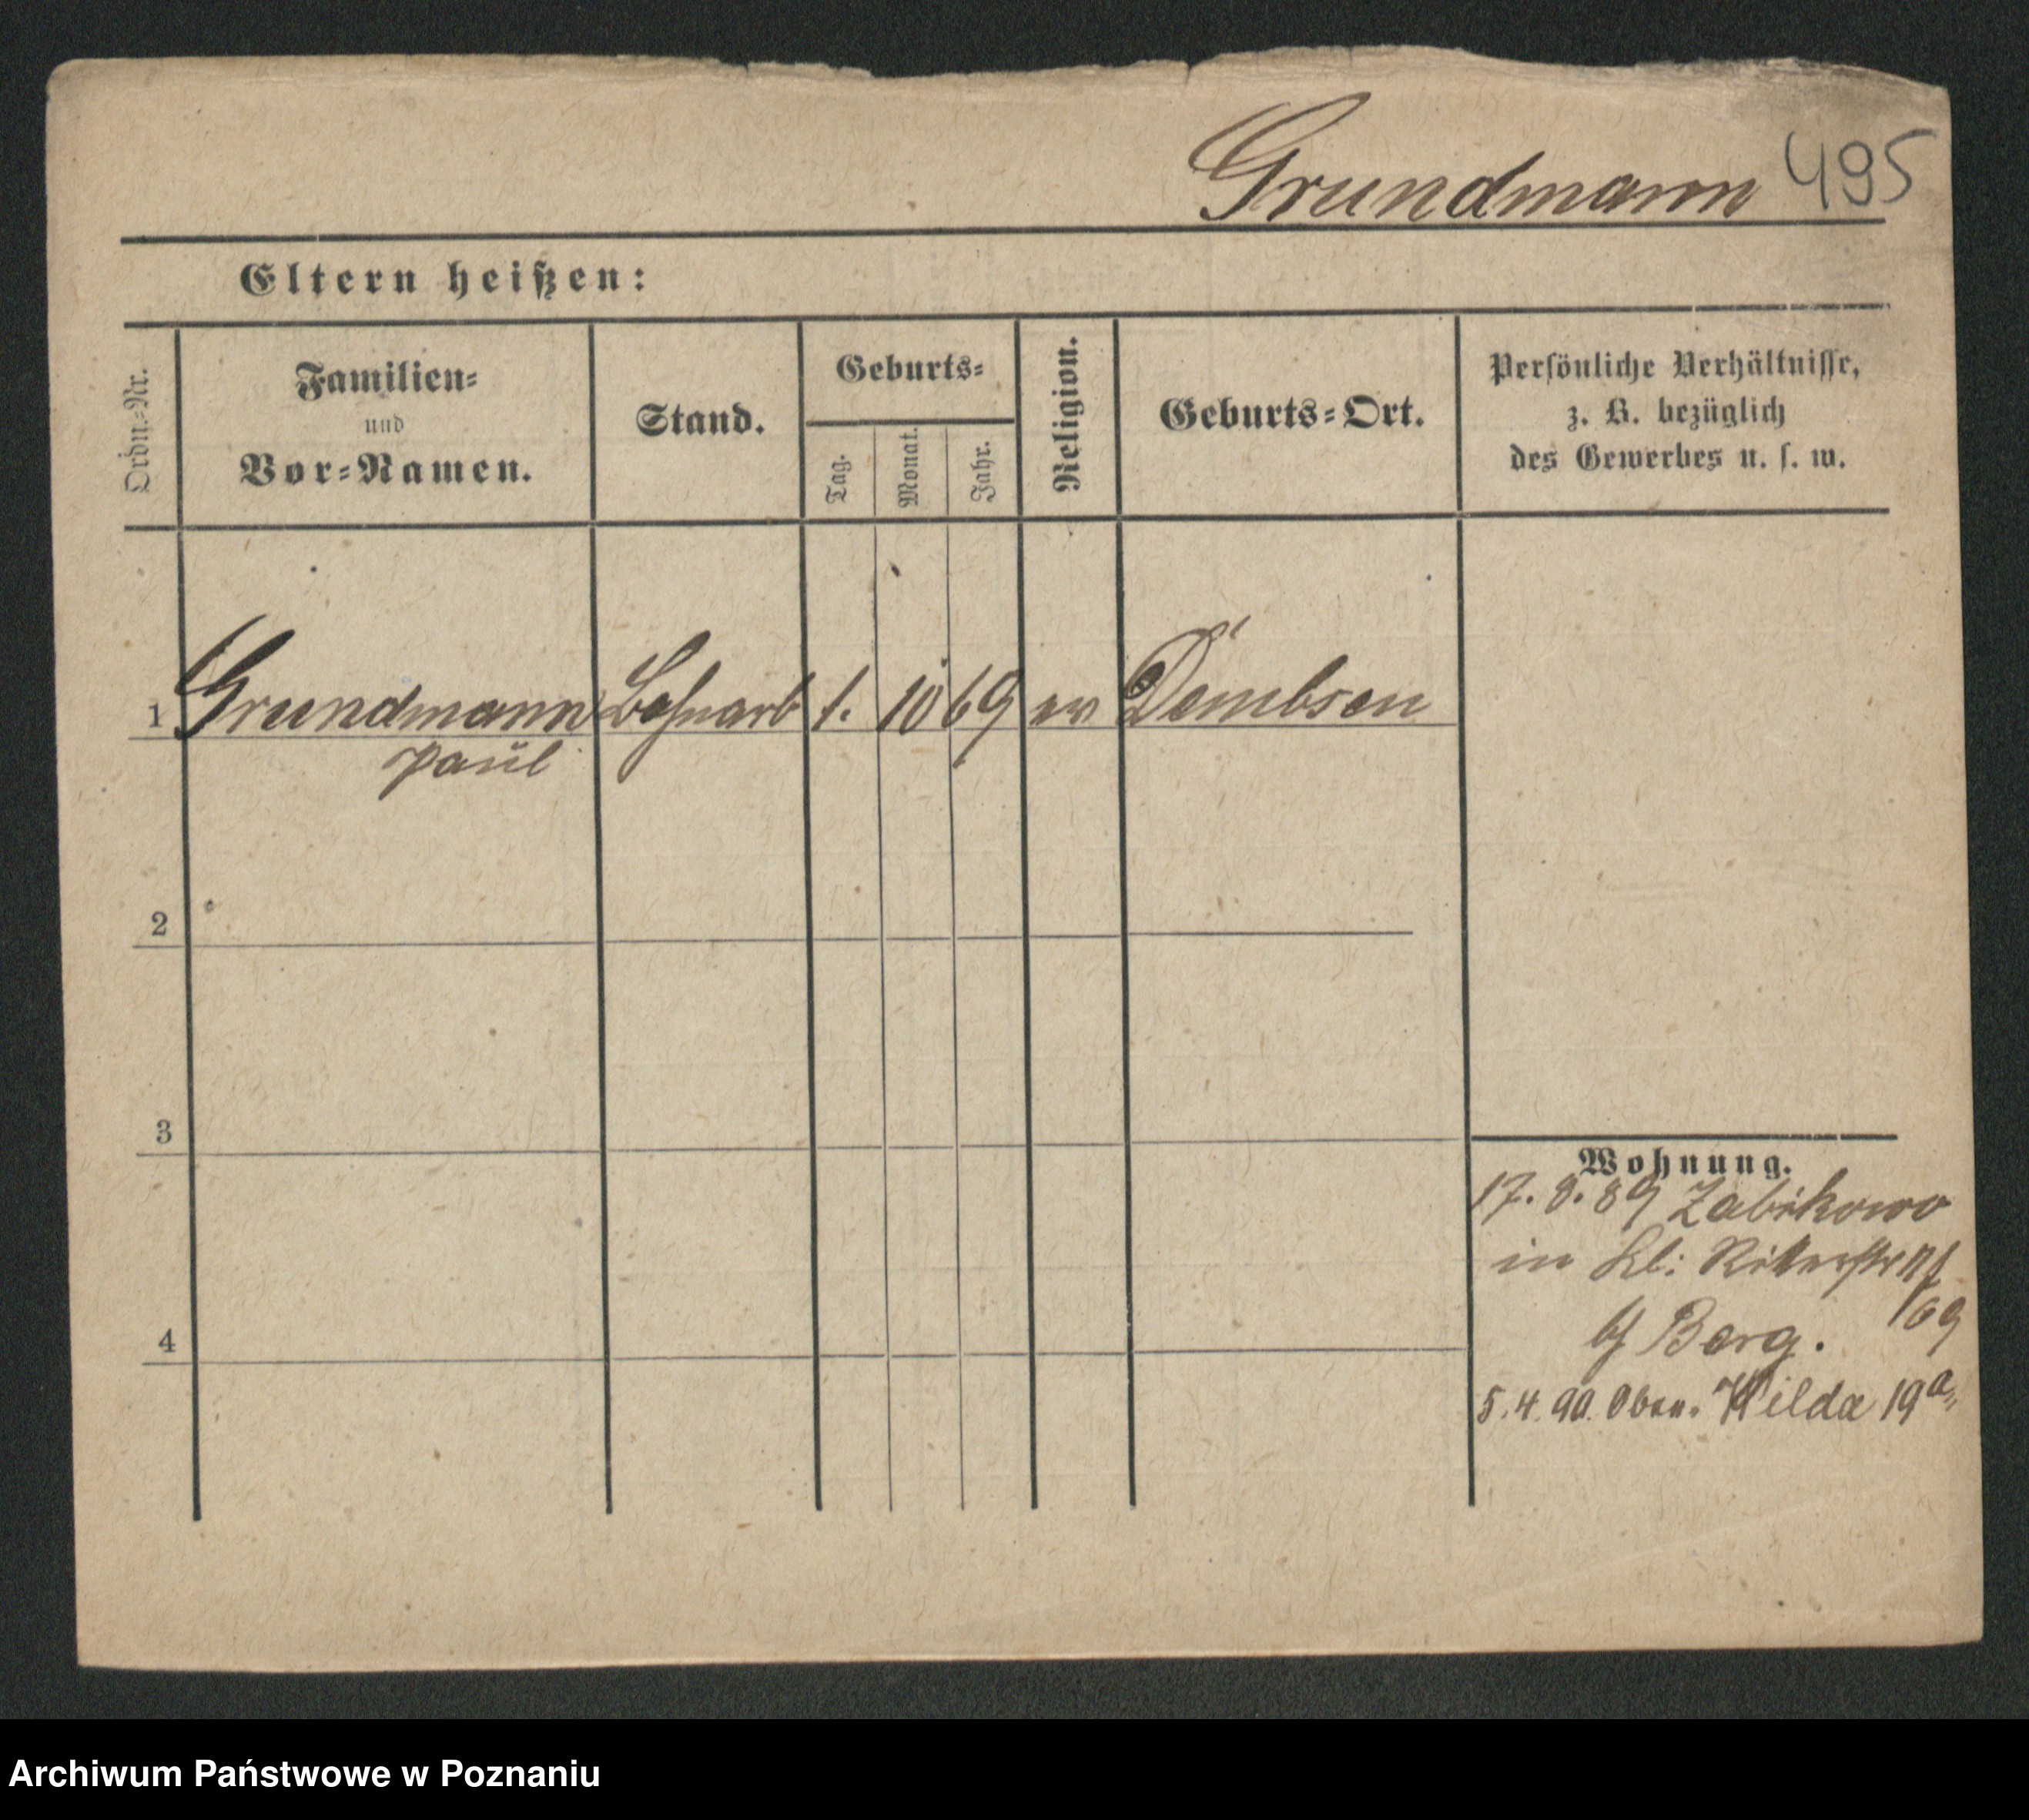 Grundmann 495
Eltern heißen:
Ordn.=Nr.
Familien=
und
Vor=Namen.
Stand.
Geburts=
Tag.
Monat.
Jahr.
Religion.
Geburts=Ort.
Persönliche Verhältnisse,
z. B. bezüglich
des Gewerbes u. s. w.
1 Grundmann Bahnarb 1. 10 69 ev Dembsen
Paul
2
3
4
Wohnung.
17. 8. 89 Zabikowo
in Kl: Ritterstr
69
b/ Berg.
5. 4. 90. Ober. Wilda 19a
Archiwum Państwowe w Poznaniu